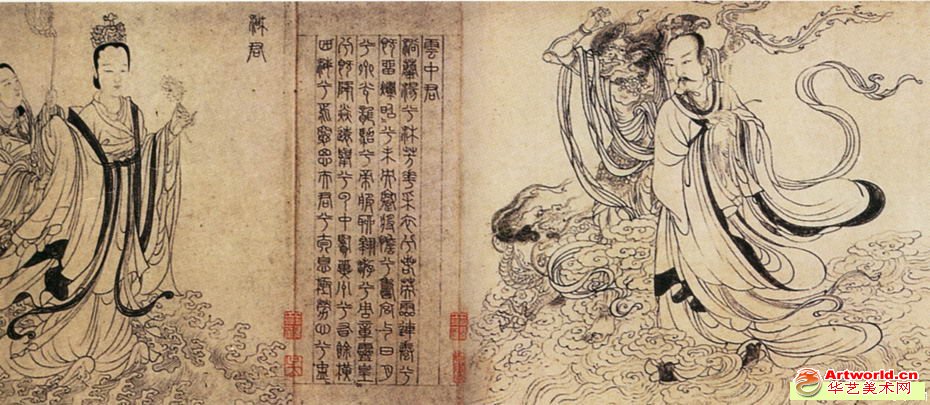 雲中君
浴蘭湯兮沐芳華采衣兮若英靈連蜷兮
既留爛昭兮未央蹇將憺兮壽宮與日月
兮齊光龍駕兮帝服聊翱遊兮周章靈皇
兮既降猋遠舉兮雲中覽冀州兮有餘橫
四海兮焉窮思夫君兮太息極勞心兮忡
湘君
Artworld.cn
华艺美术网